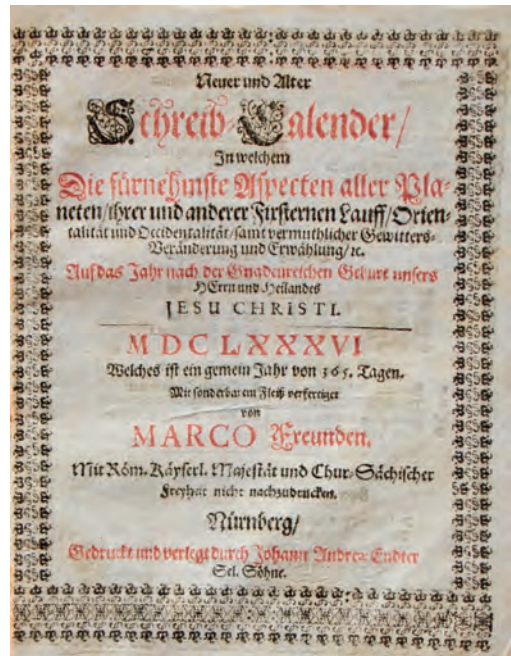 Neuer und Alter
Schreib-Calender/
In welchem
Die fürnehmste Aspecten aller Pla-
neten/ihrer und anderer Fixsternen Lauff/Orien-
talität und Occidentalität/samt vermuthlicher Gewitters-
Veränderung und Erwählung/ꝛc.
Auf das Jahr nach der Gnadenreichen Geburt unsers
HErrn und Heilandes
JESU CHRISTI.
MDCLXXXVI
Welches ist ein gemein Jahr von 365. Tagen.
Mit sonderbarem Fleiß verfertiget
von
MARCO Freunden.
Mit Röm. Käyserl. Majestät und Chur-Sächischer
Freyheit nicht nachzudrucken.
Nürnberg/
Gedruckt und verlegt durch Johann Andreæ Endter
Sel. Söhne.